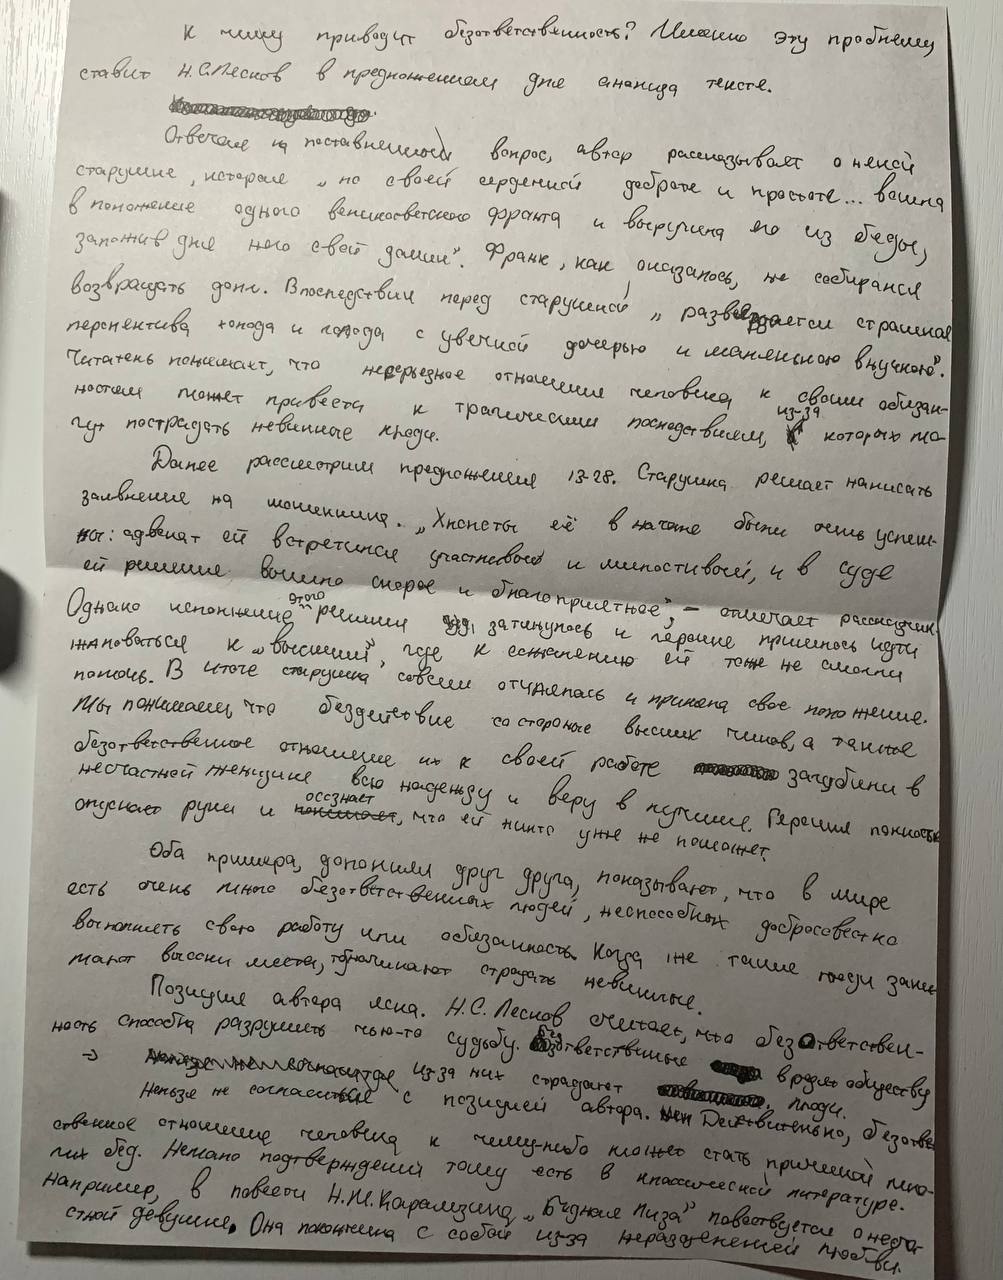 К чему приводит безответственность? Именно эту проблему
ставит Н.С.Лесков в предложенном для анализа тексте.
Отвечая на поставленный вопрос, автор рассказывает о некой
старушке, которая „по своей сердечной доброте и простоте... вошла
в положение одного великосветского франта и выручила его из беды,
заложив для него свой домик". Франк, как оказалось, не собирался
возвращать долг. Впоследствии перед старушкой „развёрзается страшная
перспектива холода и голода с увечной дочерью и маленькою внучкою".
Читатель понимает, что несерьезное отношение человека к своим обязан-
ностям может привести к трагическим последствиям, из-за которых мо-
гут пострадать невинные люди.
Далее рассмотрим предложения 13-28. Старушка решает написать
заявление на мошенника. „Хлопоты её в начале были очень успеш-
ны: адвокат ей встретился участливый и милостивый, и в суде
ей решение вышло скорое и благоприятное", – отмечает рассказчик.
Однако исполнение этого решения затянулось и героине пришлось идти
жаловаться к „высшим", где к сожалению ей тоже не смогли
помочь. В итоге старушка совсем отчаялась и приняла свое положение.
Мы понимаем, что бездействие со стороны высших чинов, а также
безответственное отношение их к своей работе загубили в
несчастной женщине всю надежду и веру в лучшее. Героиня полностью
опускает руки и осознает, что ей никто уже не поможет.
Оба примера, дополняя друг друга, показывают, что в мире
есть очень много безответственных людей, неспособных добросовестно
выполнять свою работу или обязанность. Когда же такие люди зани-
мают высоки места, то начинают страдать невинные.
Позиция автора ясна. Н.С. Лесков считает, что безответствен-
ность способна разрушить чью-то судьбу. Безответственные вредят обществу
→ из-за них страдают люди.
Нельзя не согласиться с позицией автора. Действительно, безответ-
ственное отношение человека к чему-либо может стать причиной мно-
гих бед. Немало подтверждений тому есть в классической литературе.
Например, в повести Н.М.Карамзина „Бедная Лиза" повествуется о несча-
стной девушке. Она покончила с собой из-за неразделенной любви.